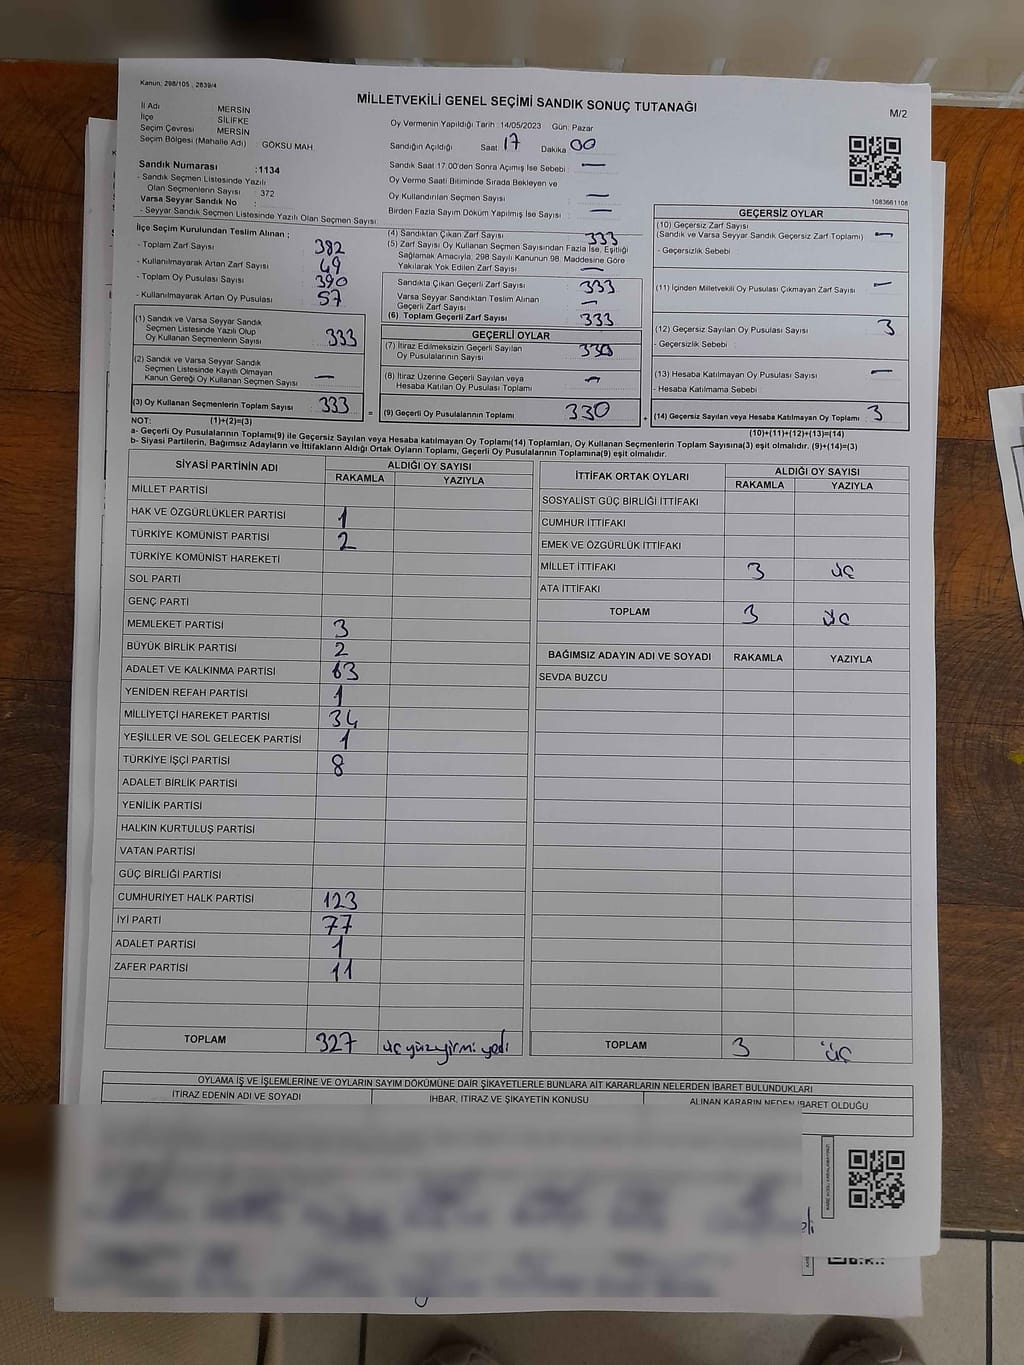 Kanun: 298/105 ; 2839/4
MİLLETVEKİLİ GENEL SEÇİMİ SANDIK SONUÇ TUTANAĞI
M/2
İl Adı : MERSİN
İlçe : SİLİFKE
Seçim Çevresi : MERSİN
Seçim Bölgesi (Mahalle Adı) : GÖKSU MAH
Sandık Numarası : 1134
- Sandık Seçmen Listesinde Yazılı
Olan Seçmenlerin Sayısı : 372
Varsa Seyyar Sandık No :
- Seyyar Sandık Seçmen Listesinde Yazılı Olan Seçmen Sayısı:
Oy Vermenin Yapıldığı Tarih : 14/05/2023 Gün: Pazar
Sandığın Açıldığı Saat 17 Dakika 00
Sandık Saat 17:00'den Sonra Açımış İse Sebebi : —
Oy Verme Saati Bitiminde Sırada Bekleyen ve
Oy Kullandırılan Seçmen Sayısı : —
Birden Fazla Sayım Döküm Yapılmış İse Sayısı : —
1083661108
İlçe Seçim Kurulundan Teslim Alınan ;
- Toplam Zarf Sayısı : 382
- Kullanılmayarak Artan Zarf Sayısı : 49
- Toplam Oy Pusulası Sayısı : 390
- Kullanılmayarak Artan Oy Pusulası : 57
(1) Sandık ve Varsa Seyyar Sandık
Seçmen Listesinde Yazılı Olup
Oy Kullanan Seçmenlerin Sayısı : 333
(2) Sandık ve Varsa Seyyar Sandık
Seçmen Listesinde Kayıtlı Olmayan
Kanun Gereği Oy Kullanan Seçmen Sayısı : —
(3) Oy Kullanan Seçmenlerin Toplam Sayısı : 333
(4) Sandıktan Çıkan Zarf Sayısı : 333
(5) Zarf Sayısı Oy Kullanan Seçmen Sayısından Fazla İse, Eşitliği
Sağlamak Amacıyla, 298 Sayılı Kanunun 98. Maddesine Göre
Yakılarak Yok Edilen Zarf Sayısı : —
Sandıkta Çıkan Geçerli Zarf Sayısı : 333
Varsa Seyyar Sandıktan Teslim Alınan
Geçerli Zarf Sayısı : —
(6) Toplam Geçerli Zarf Sayısı : 333
GEÇERLİ OYLAR
(7) İtiraz Edilmeksizin Geçerli Sayılan
Oy Pusulalarının Sayısı : 330
(8) İtiraz Üzerine Geçerli Sayılan veya
Hesaba Katılan Oy Pusulası Toplamı : —
= (9) Geçerli Oy Pusulalarının Toplamı : 330
GEÇERSİZ OYLAR
(10) Geçersiz Zarf Sayısı
(Sandık ve Varsa Seyyar Sandık Geçersiz Zarf Toplamı) : —
- Geçersizlik Sebebi :
(11) İçinden Milletvekili Oy Pusulası Çıkmayan Zarf Sayısı : —
(12) Geçersiz Sayılan Oy Pusulası Sayısı : 3
- Geçersizlik Sebebi :
(13) Hesaba Katılmayan Oy Pusulası Sayısı : —
- Hesaba Katılmama Sebebi :
+ (14) Geçersiz Sayılan veya Hesaba Katılmayan Oy Toplamı : 3
NOT: (1)+(2)=(3)
(10)+(11)+(12)+(13)=(14)
a- Geçerli Oy Pusulalarının Toplamı(9) ile Geçersiz Sayılan veya Hesaba katılmayan Oy Toplamı(14) Toplamları, Oy Kullanan Seçmenlerin Toplam Sayısına(3) eşit olmalıdır. (9)+(14)=(3)
b- Siyasi Partilerin, Bağımsız Adayların ve İttifakların Aldığı Ortak Oyların Toplamı, Geçerli Oy Pusulalarının Toplamına(9) eşit olmalıdır.
SİYASİ PARTİNİN ADI ALDIĞI OY SAYISI
RAKAMLA YAZIYLA
MİLLET PARTİSİ
HAK VE ÖZGÜRLÜKLER PARTİSİ 1
TÜRKİYE KOMÜNİST PARTİSİ 2
TÜRKİYE KOMÜNİST HAREKETİ
SOL PARTİ
GENÇ PARTİ
MEMLEKET PARTİSİ 3
BÜYÜK BİRLİK PARTİSİ 2
ADALET VE KALKINMA PARTİSİ 63
YENİDEN REFAH PARTİSİ 1
MİLLİYETÇİ HAREKET PARTİSİ 34
YEŞİLLER VE SOL GELECEK PARTİSİ 1
TÜRKİYE İŞÇİ PARTİSİ 8
ADALET BİRLİK PARTİSİ
YENİLİK PARTİSİ
HALKIN KURTULUŞ PARTİSİ
VATAN PARTİSİ
GÜÇ BİRLİĞİ PARTİSİ
CUMHURİYET HALK PARTİSİ 123
İYİ PARTİ 77
ADALET PARTİSİ 1
ZAFER PARTİSİ 11
TOPLAM 327 üçyüzyirmi yedi
İTTİFAK ORTAK OYLARI ALDIĞI OY SAYISI
RAKAMLA YAZIYLA
SOSYALİST GÜÇ BİRLİĞİ İTTİFAKI
CUMHUR İTTİFAKI
EMEK VE ÖZGÜRLÜK İTTİFAKI
MİLLET İTTİFAKI 3 üç
ATA İTTİFAKI
TOPLAM 3 üç
BAĞIMSIZ ADAYIN ADI VE SOYADI RAKAMLA YAZIYLA
SEVDA BUZCU
TOPLAM 3 üç
OYLAMA İŞ VE İŞLEMLERİNE VE OYLARIN SAYIM DÖKÜMÜNE DAİR ŞİKAYETLERLE BUNLARA AİT KARARLARIN NELERDEN İBARET BULUNDUKLARI
İTİRAZ EDENİN ADI VE SOYADI IHBAR, İTİRAZ VE ŞİKAYETİN KONUSU ALINAN KARARIN NEDEN İBARET OLDUĞU